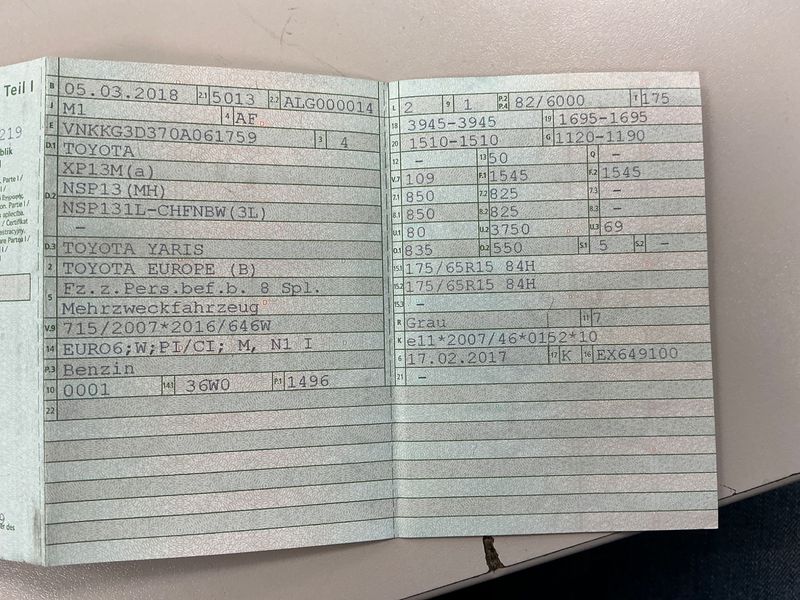 Teil I
219
blik
, Parte I /
on. Parte I /
apliecība.
/ Certifikat
are Partea I /
er des
B 05.03.2018 2.1 5013 2.2 ALG000014
J M1 4 AF
E VNKKG3D370A061759 3 4
D.1 TOYOTA
XP13M(a)
D.2 NSP13(MH)
NSP131L-CHFNBW(3L)
–
D.3 TOYOTA YARIS
2 TOYOTA EUROPE (B)
5 Fz.z.Pers.bef.b. 8 Spl.
Mehrzweckfahrzeug
V.9 715/2007*2016/646W
14 EURO6;W;PI/CI; M, N1 I
P.3 Benzin
10 0001 14.1 36W0 P.1 1496
22
L 2 9 1 P.2 P.4 82/6000 T 175
18 3945-3945 19 1695-1695
20 1510-1510 G 1120-1190
12 – 13 50 Q –
V.7 109 F.1 1545 F.2 1545
7.1 850 7.2 825 7.3 –
8.1 850 8.2 825 8.3 –
U.1 80 U.2 3750 U.3 69
O.1 835 O.2 550 S.1 5 S.2 –
15.1 175/65R15 84H
15.2 175/65R15 84H
15.3 –
R Grau 11 7
K e11*2007/46*0152*10
6 17.02.2017 17 K 16 EX649100
21 –